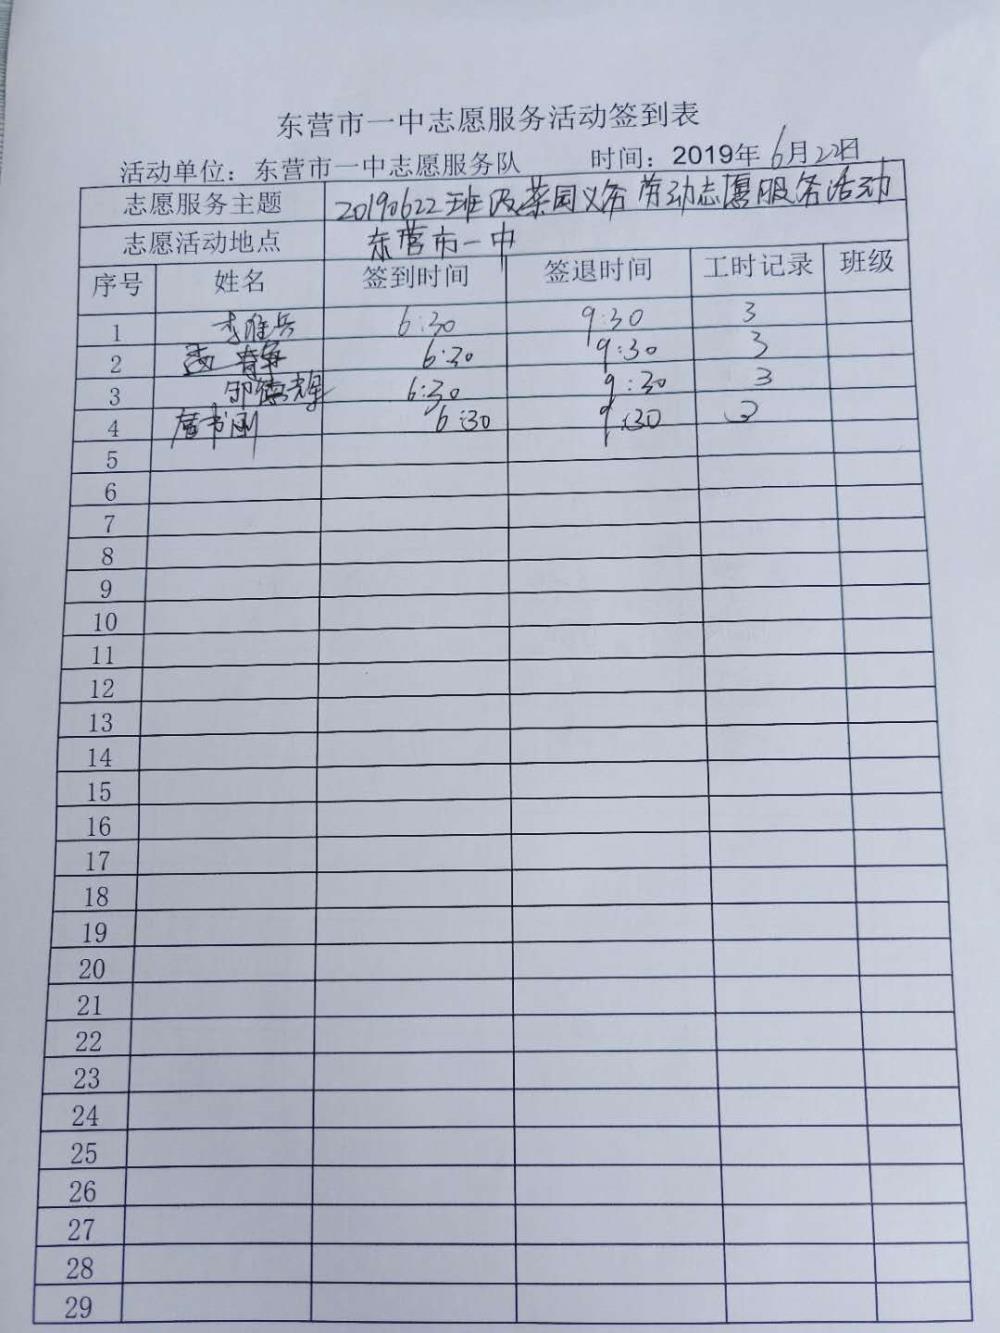 东营市一中志愿服务活动签到表
活动单位：东营市一中志愿服务队 时间：2019年6月22日
志愿服务主题 20190622班级菜园义务劳动志愿服务活动
志愿活动地点 东营市一中
序号 姓名 签到时间 签退时间 工时记录 班级
1 李维兵 6:30 9:30 3
2 6:30 9:30 3
3 邹德辉 6:30 9:30 3
4 书刚 6:30 9:30 3
5
6
7
8
9
10
11
12
13
14
15
16
17
18
19
20
21
22
23
24
25
26
27
28
29